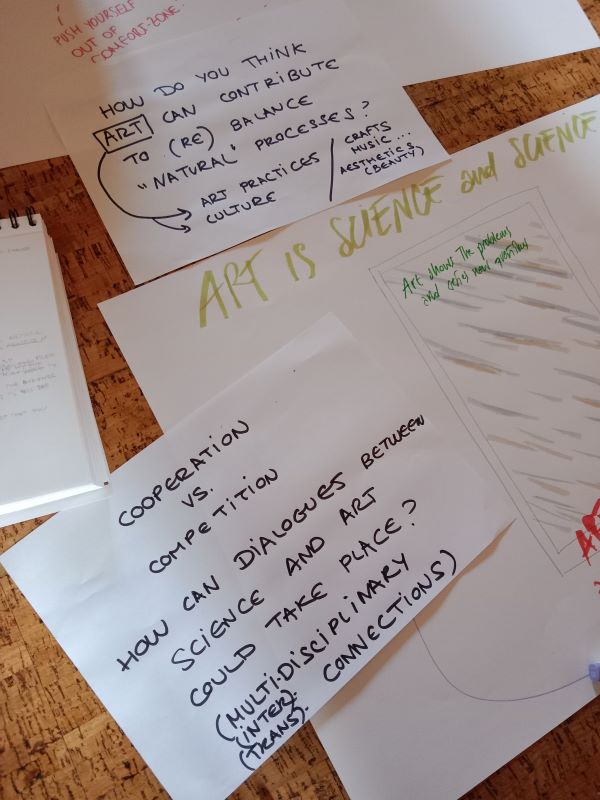 PUSH YOURSELF
OUT OF
COMFORT-ZONE.
HOW DO YOU THINK
ART CAN CONTRIBUTE
TO (RE) BALANCE
"NATURAL" PROCESSES?
ART PRACTICES
CULTURE
CRAFTS
MUSIC...
AESTHETICS
(BEAUTY)
ART IS SCIENCE and SCIENCE
Art shows the problems
and new questions
COOPERATION
VS.
COMPETITION
HOW CAN DIALOGUES BETWEEN
SCIENCE AND ART
COULD TAKE PLACE?
(MULTI-DISCIPLINARY
(INTER). CONNECTIONS)
(TRANS).